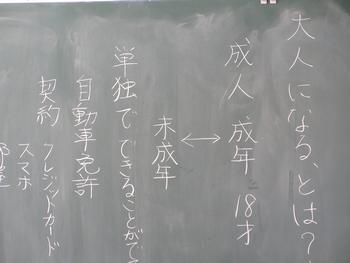 大人になる、とは?
成人 成年 18才
↔
未成年
単独でできることがで
自動車免許
契約 クレジットカード
スマホ